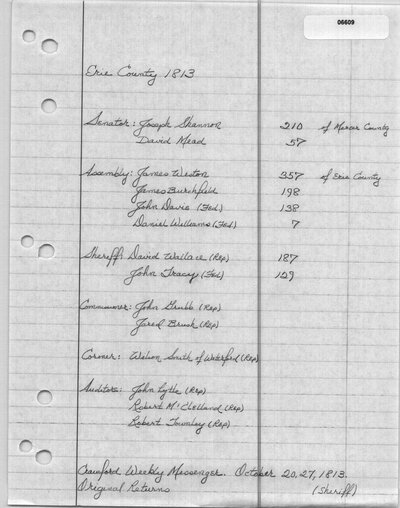 06609
Erie County 1813
Senator: Joseph Shannon 210 of Mercer County
David Mead 57
Assembly: James Weston 357 of Erie County
James Burchfield 198
John Davis (Fed.) 138
Daniel Williams (Fed.) 7
Sheriff: David Wallace (Rep) 187
John Tracy (Fed) 129
Commissioner: John Grubb (Rep)
Jared Brush (Rep)
Coroner: Wilson Smith of Waterford (Rep)
Auditors: John Lytle (Rep)
Robert McClelland (Rep)
Robert Townley (Rep)
Crawford Weekly Messenger. October 20, 27, 1813.
Original Returns (Sheriff)